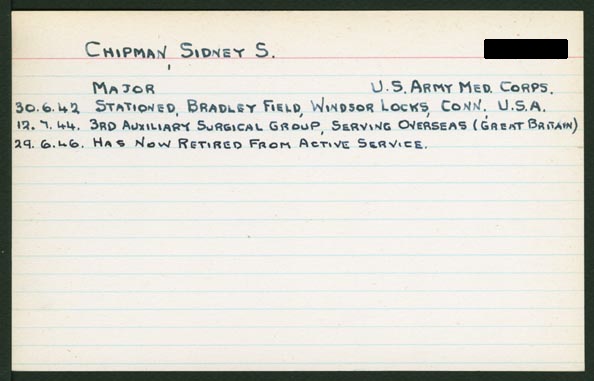 CHIPMAN, SIDNEY S.
MAJOR U.S. ARMY MED. CORPS.
30.6.42 STATIONED, BRADLEY FIELD, WINDSOR LOCKS, CONN. U.S.A.
12.7.44. 3RD AUXILIARY SURGICAL GROUP, SERVING OVERSEAS (GREAT BRITAIN)
29.6.46. HAS NOW RETIRED FROM ACTIVE SERVICE.